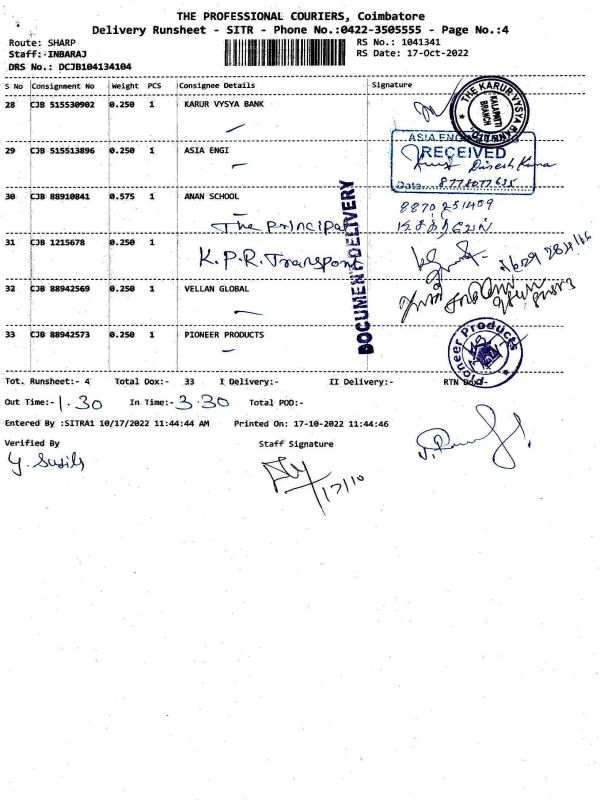 THE PROFESSIONAL COURIERS, Coimbatore
Delivery Runsheet - SITR - Phone No.:0422-3505555 - Page No.:4
Route: SHARP RS No.: 1041341
Staff: INBARAJ RS Date: 17-Oct-2022
DRS No.: DCJB104134104
S No Consignment No Weight PCS Consignee Details Signature
28 CJB 515530902 0.250 1 KARUR VYSYA BANK
THE KARUR VYSYA BANK
KALAPATTI
BRANCH
29 CJB 515513896 0.250 1 ASIA ENGI
RECEIVED
Dinesh Kumar
Date
30 CJB 88910841 0.575 1 ANAN SCHOOL
The principal
31 CJB 1215678 0.250 1
K.P.R. Transport
32 CJB 88942569 0.250 1 VELLAN GLOBAL
DOCUMENT DELIVERY
33 CJB 88942573 0.250 1 PIONEER PRODUCTS
Pioneer Products
Tot. Runsheet:- 4 Total Dox:- 33 I Delivery:- II Delivery:- RTN
Out Time:- 1.30 In Time:- 3.30 Total POD:-
Entered By :SITRA1 10/17/2022 11:44:44 AM Printed On: 17-10-2022 11:44:46
Verified By Staff Signature
17/10